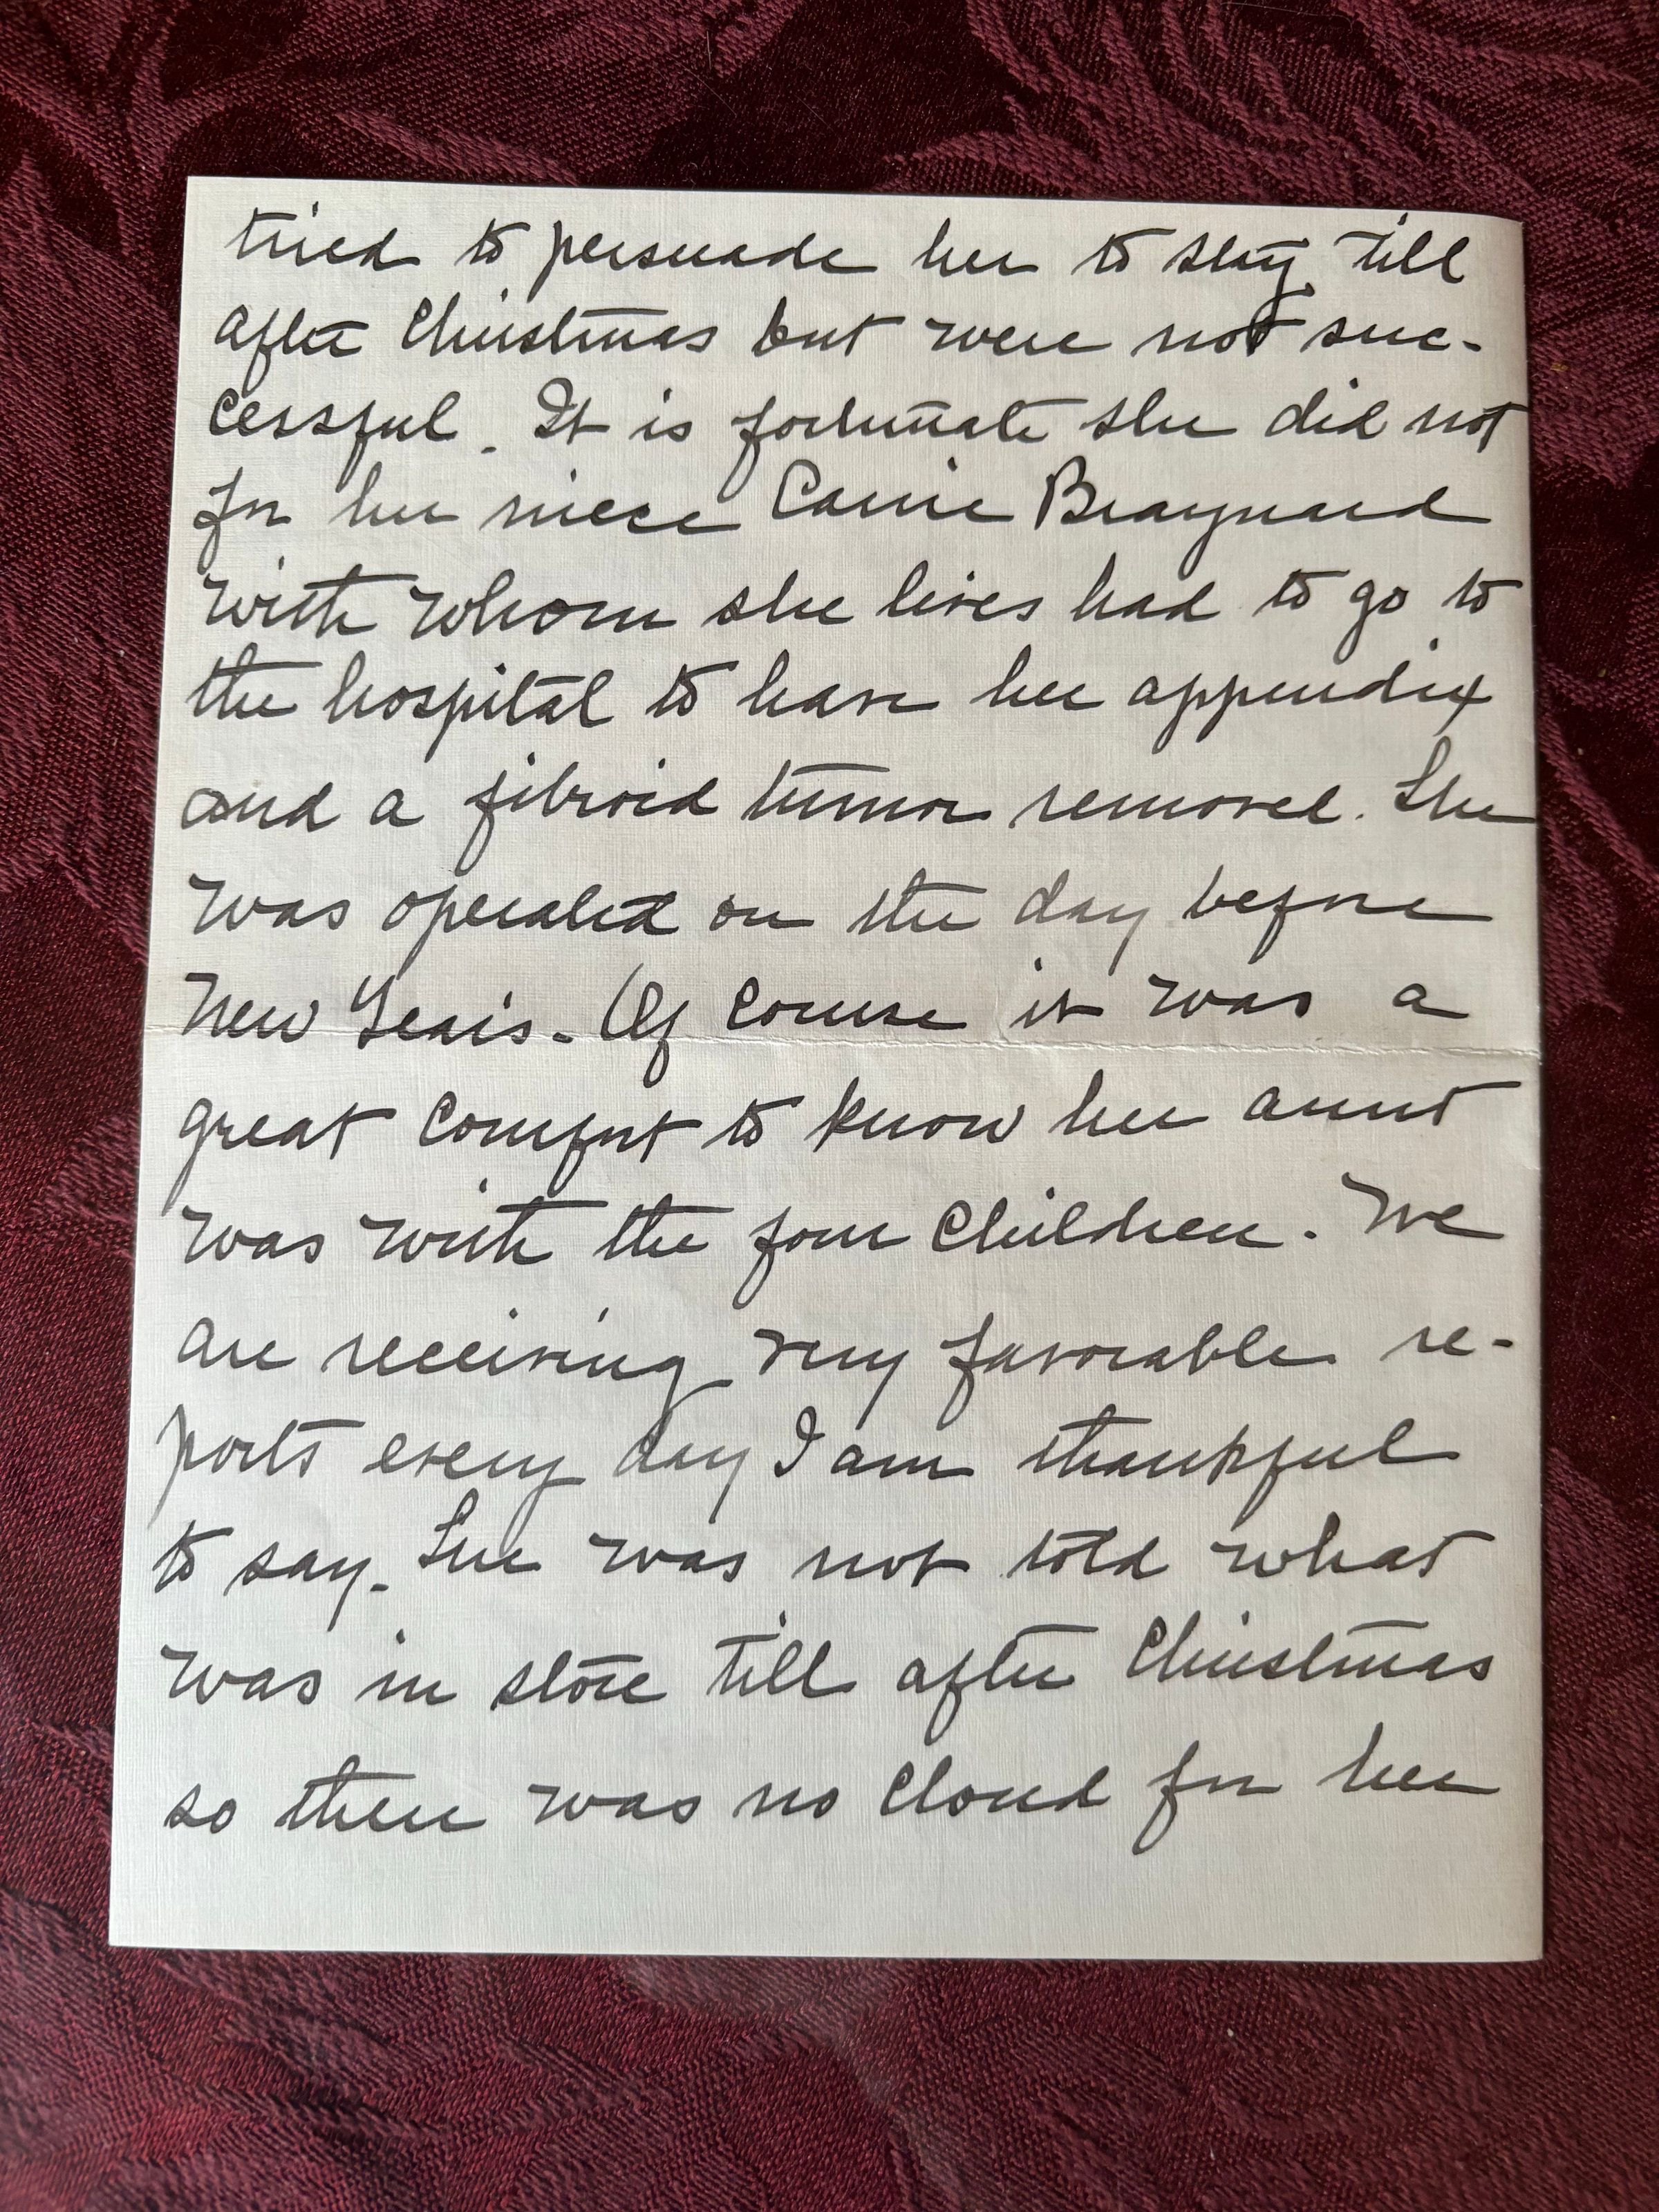 tried to persuade her to stay till
after Christmas but were not suc-
cessful. It is fortunate she did not
for her niece Carrie Braynard
with whom she lives had to go to
the hospital to have her appendix
and a fibroid tumor removed. She
was operated on the day before
New Years. Of course it was a
great comfort to know her aunt
was with the four children. We
are receiving very favorable re-
ports every day I am thankful
to say. She was not told what
was in store till after Christmas
so there was no cloud for her